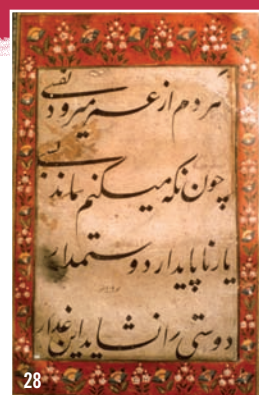 هر دم از عمر میرود نفسی
چون نگه میکنم نماند بسی
یار ناپایدار دوست مدار
دوستی را نشاید این غدار
28